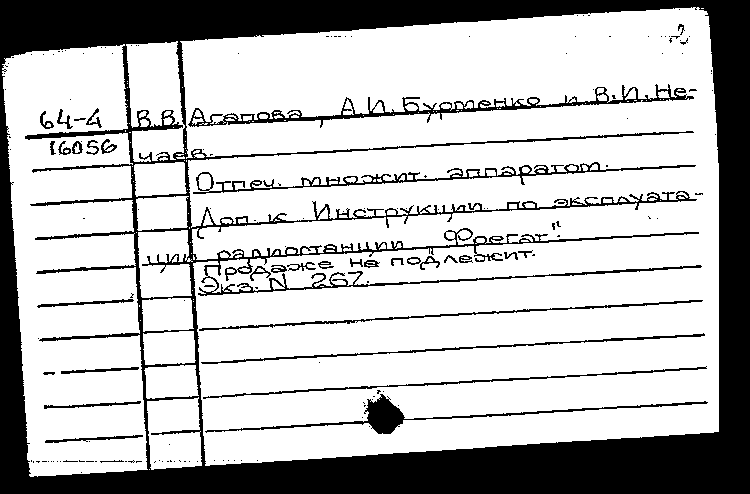 2
64-4 В.В. Агапова, А.И. Бурменко и В.И. Не-
16056 чаев.
Отпеч. множит. аппаратом.
Доп. к Инструкции по эксплуата-
ции радиостанции „Фрегат".
Продаже не подлежит.
Экз. N 267.